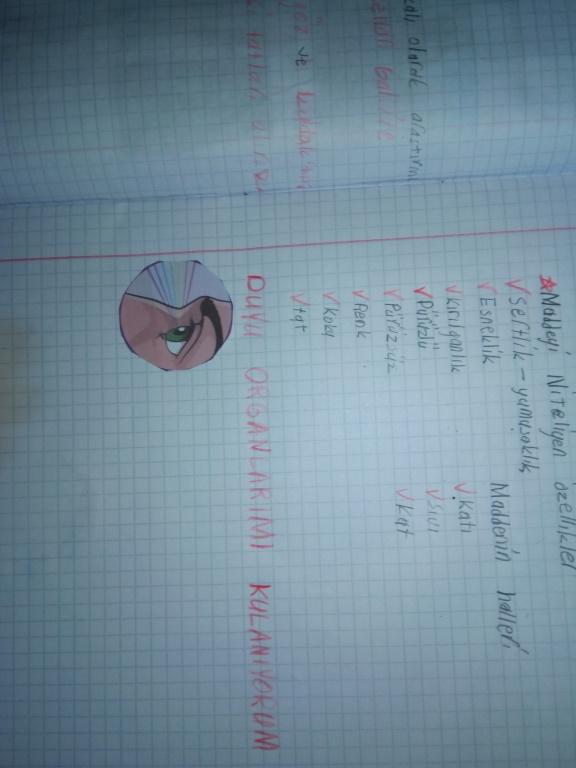 calı olarak araştırma
göz ve
Maddeyi Niteliyen özellikler
Sertlik - yumuşaklık
Esneklik
Kırılganlık
Pürüzlü
Pürüzsüz
Renk
Koku
tat
Maddenin halleri
Katı
Sıvı
Kat
DUYU ORGANLARIMI KULANIYORUM